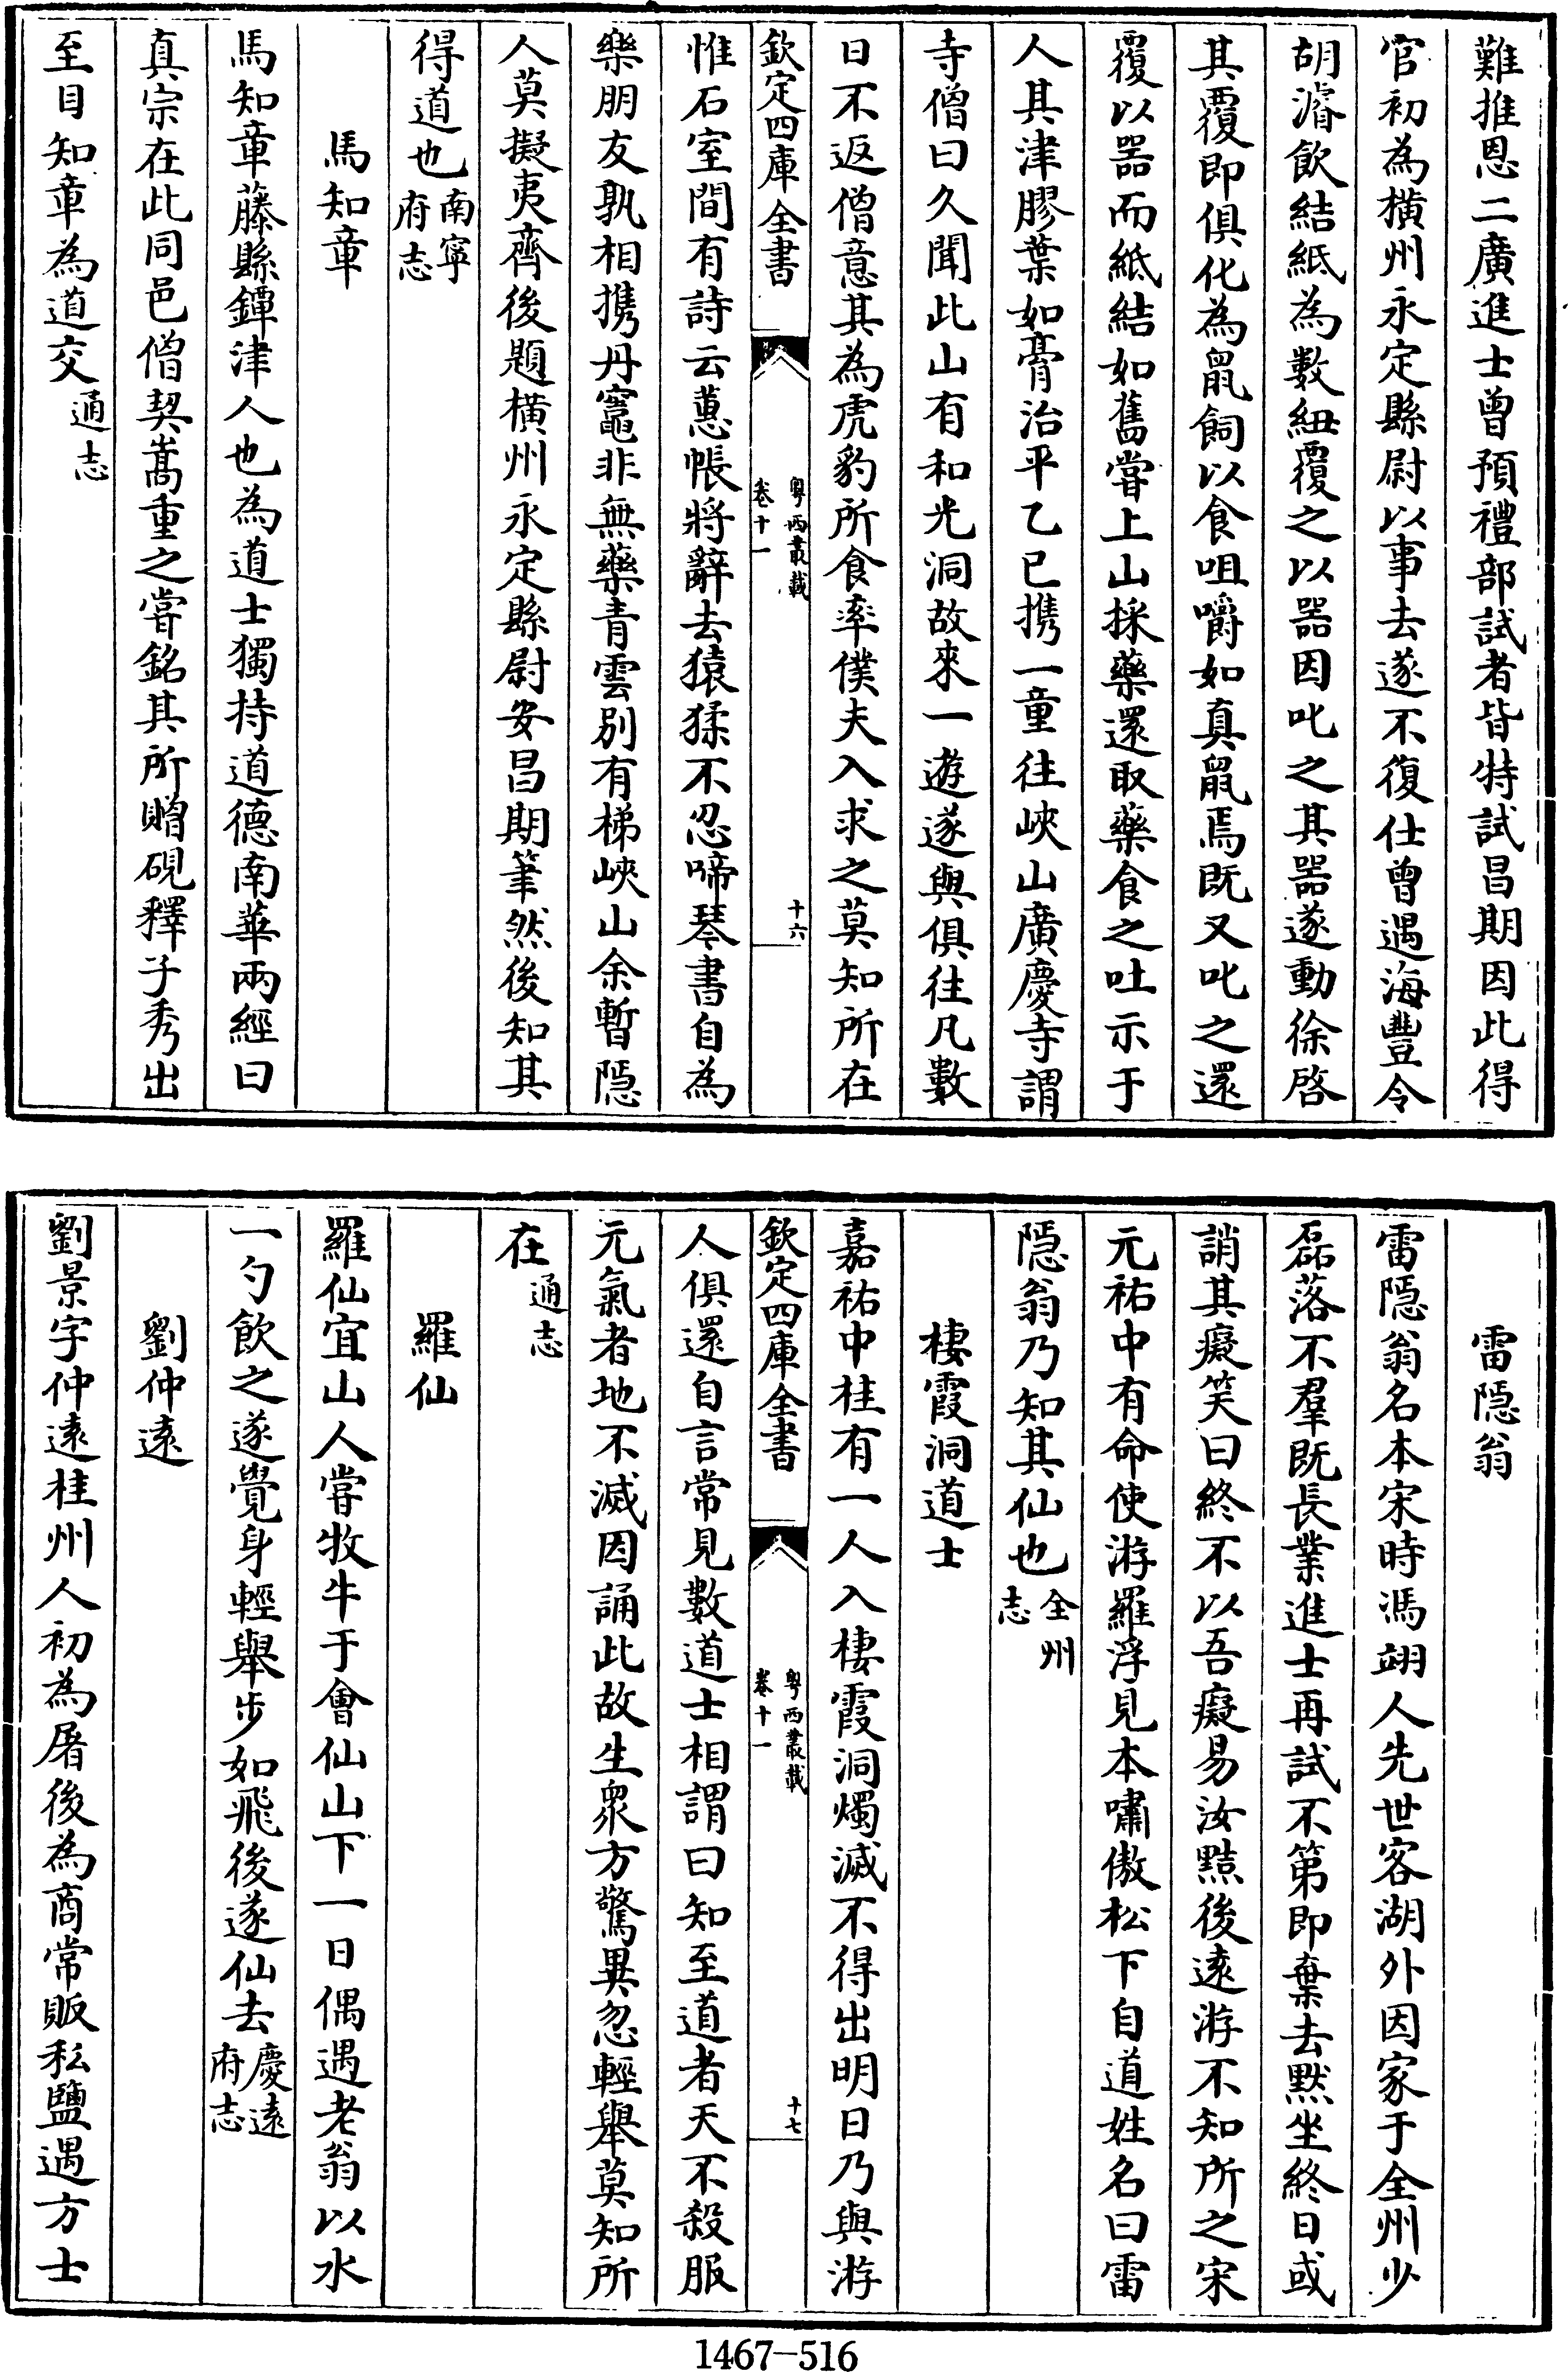 難推恩二廣進士曾預禮部試者皆特試昌期因此得
官初為橫州永定縣尉以事去遂不復仕曾遇海豐令
胡濬飲結紙為數紐覆之以器因叱之其器遂動徐啓
其覆即俱化為鼠飼以食咀嚼如真鼠焉既又叱之還
覆以器而紙結如舊嘗上山採藥還取藥食之吐示于
人其津膠葉如膏治平乙巳携一童往峽山廣慶寺謂
寺僧曰久聞此山有和光洞故來一遊遂與俱往凡數
日不返僧意其為虎豹所食率僕夫入求之莫知所在
欽定四庫全書
粤西叢載
卷十一
十六
惟石室間有詩云蕙帳將辭去猿猱不忍啼琴書自為
樂朋友孰相携丹竈非無藥青雲別有梯峽山余暫隱
人莫擬夷齊後題橫州永定縣尉安昌期筆然後知其
得道也南寧府志
馬知章
馬知章藤縣鐔津人也為道士獨持道德南華兩經曰
真宗在此同邑僧契嵩重之嘗銘其所贈硯釋子秀出
至目知章為道交通志
雷隱翁
雷隱翁名本宋時馮翊人先世客湖外因家于全州少
磊落不羣既長業進士再試不第即棄去默坐終日或
誚其癡笑曰終不以吾癡易汝黠後遠游不知所之宋
元祐中有命使游羅浮見本嘯傲松下自道姓名曰雷
隱翁乃知其仙也全州志
棲霞洞道士
嘉祐中桂有一人入棲霞洞燭滅不得出明日乃與游
欽定四庫全書
粤西叢載
卷十一
十七
人俱還自言常見數道士相謂曰知至道者天不殺服
元氣者地不滅因誦此故生衆方驚異忽輕舉莫知所
在通志
羅仙
羅仙宜山人嘗牧牛于會仙山下一日偶遇老翁以水
一勺飲之遂覺身輕舉步如飛後遂仙去慶遠府志
劉仲遠
劉景字仲遠桂州人初為屠後為商常販私鹽遇方士
1467-516